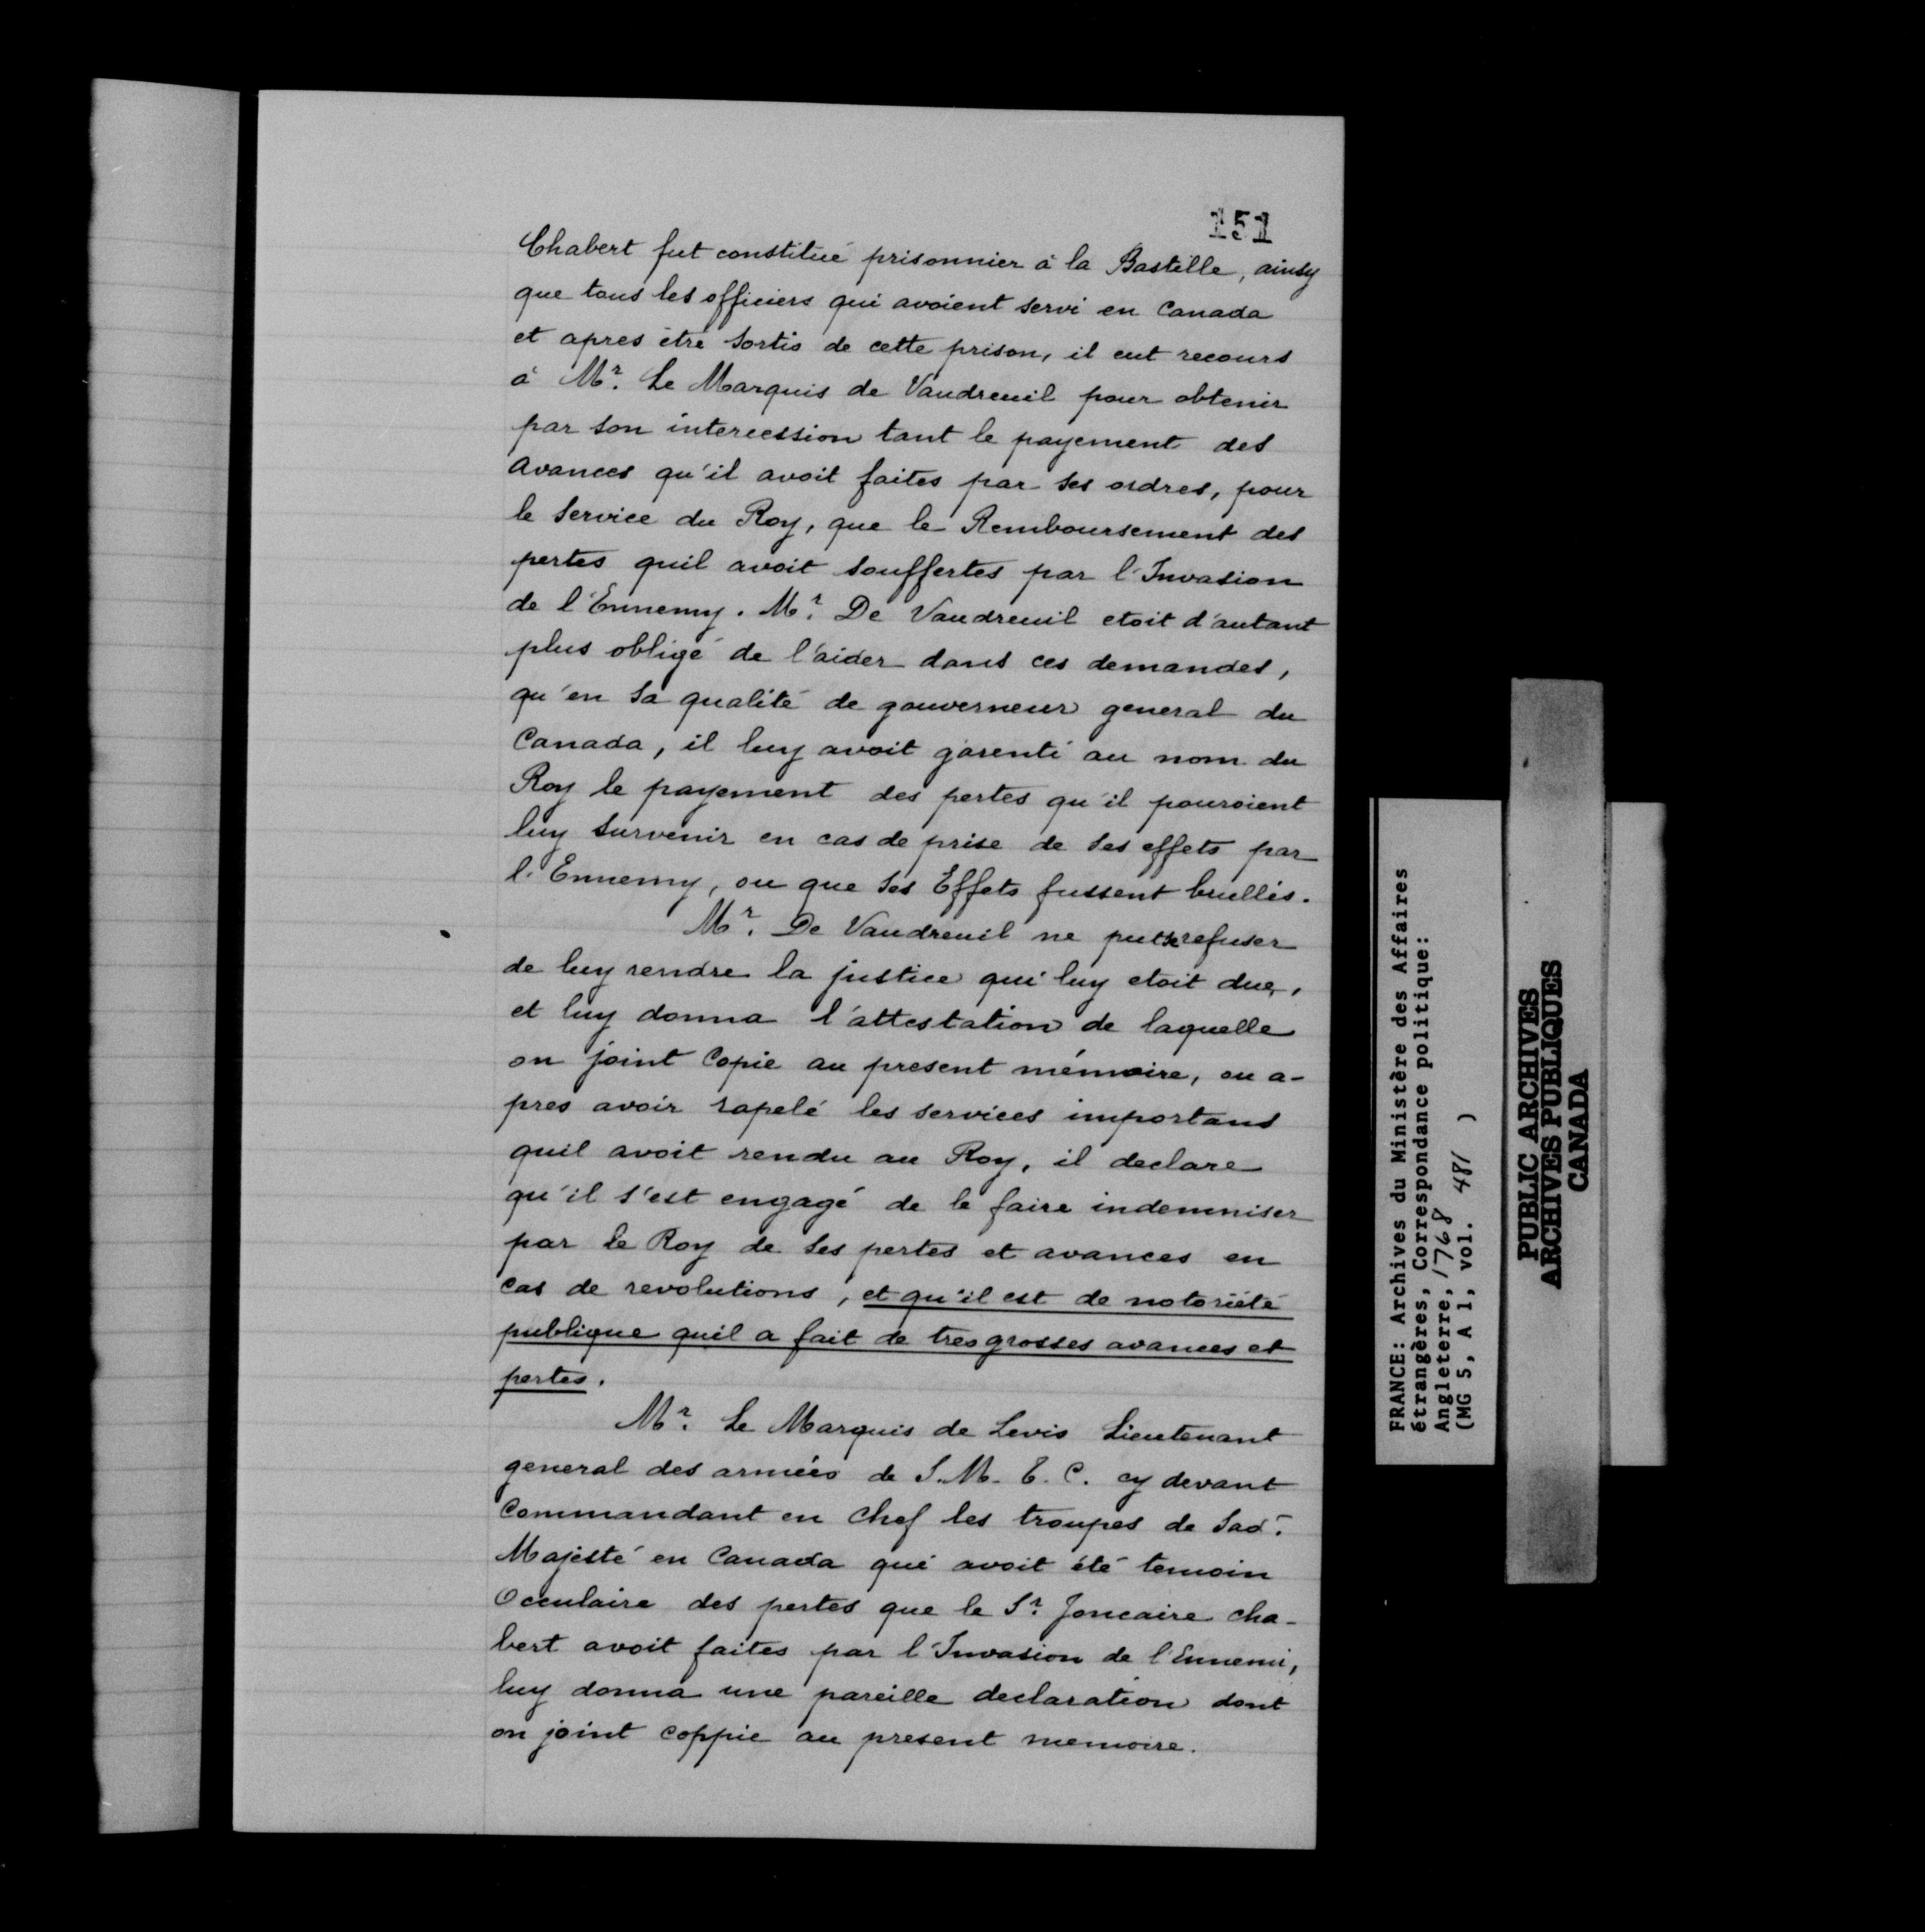 151
Chabert fut constitué prisonnier à la Bastille, ainsy
que tous les officiers qui avoient servi en Canada
et apres être sortis de cette prison, il eut recours
à Mr. Le Marquis de Vaudreuil pour obtenir
par son intercession tant le payement des
avances qu'il avoit faites par ses ordres, pour
le service du Roy, que le Remboursement des
pertes quil avoit souffertes par l'Invasion
de l'Ennemy. Mr. De Vaudreuil etoit d'autant
plus obligé de l'aider dans ces demandes,
qu'en sa qualité de gouverneur general du
Canada, il luy avoit garenti au nom du
Roy le payement des pertes qu'il pouroient
luy survenir en cas de prise de ses effets par
l'Ennemy, ou que ses Effets fussent brullés.
Mr. De Vaudreuil ne put refuser
de luy rendre la justice qui luy etoit due,
et luy donna l'attestation de laquelle
on joint Copie au present mémoire, ou a-
pres avoir rapelé les services importans
quil avoit rendu au Roy, il declare
qu'il s'est engagé de le faire indemniser
par le Roy de ses pertes et avances en
cas de revolutions, et qu'il est de notoriété
publique quil a fait de tres grosses avances et
pertes.
Mr. Le Marquis de Levis Lieutenant
general des armées de S. M. T. C. cy devant
Commandant en chef les troupes de Sad.
Majesté en Canada qui avoit été temoin
Occulaire des pertes que le Sr. Joncaire cha-
bert avoit faites par l'Invasion de l'Ennemi,
luy donna une pareille declaration dont
on joint coppie au present memoire.
FRANCE: Archives du Ministère des Affaires
étrangères, Correspondance politique:
Angleterre, 1768
(MG 5, A 1, vol. 481 )
PUBLIC ARCHIVES
ARCHIVES PUBLIQUES
CANADA